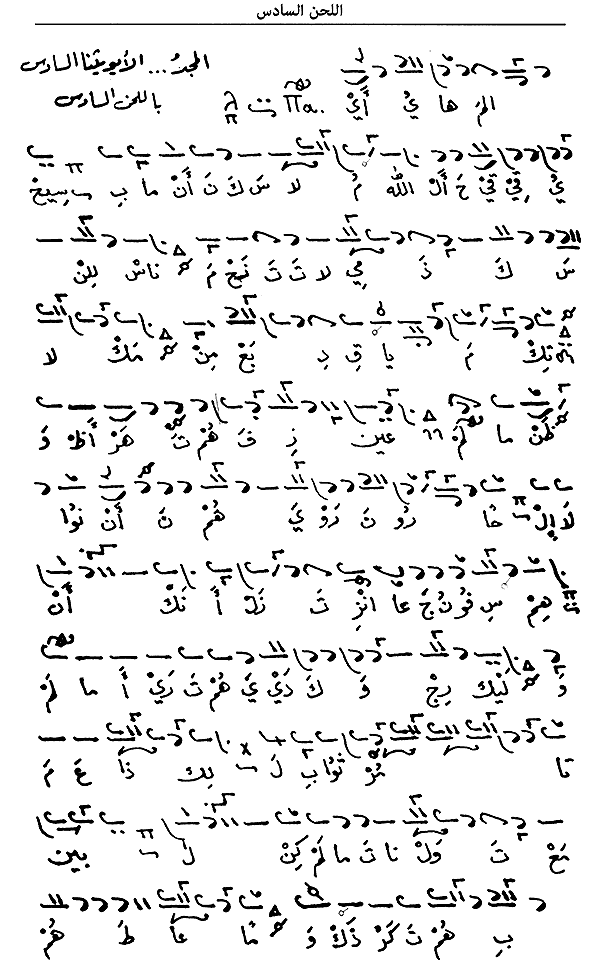 اللحن السادس
المجدُ... الأيوثينا السادس
باللحن السادس
المَ ها يُ أَيْ
يْ قِيْ قِيْ حَ أَلْ الله مُ لا سَ كَ نَ أَنْ ما بِ سِيحْ
سَ كَ ذَ مِي لا تَ تَ نَحْ مَ ناسْ لِلنْ
نِكْ مَ يا قِ دِ بَعْ مِنْ مَكْ لا
ظَنْ ما لَمْ عين زِ فَ هُمْ تَ هَرْ أَظْ وَ
لَا إِلْ حا رو تَ رَوْ يَ هُمْ تَ أَنْ نوُا
هِمْ سِ فُو نُ جَ عا انْزِ تَ زَلْ أَ نَكْ أَنْ
وَ لَيْك رِجْ وَ كَ دَيْ يَ هُمْ تَ رَيْ أَ ما لَمْ
قا تُرْ ثوُا بِ لَ لِك ذا عَ مَ
مَعْ تَ وَلْ نا تَ ما لَمْ كِنْ لَ بين
بِ هُمْ تَ كَرْ ذَكْ وَ ما عا طَ هُمْ